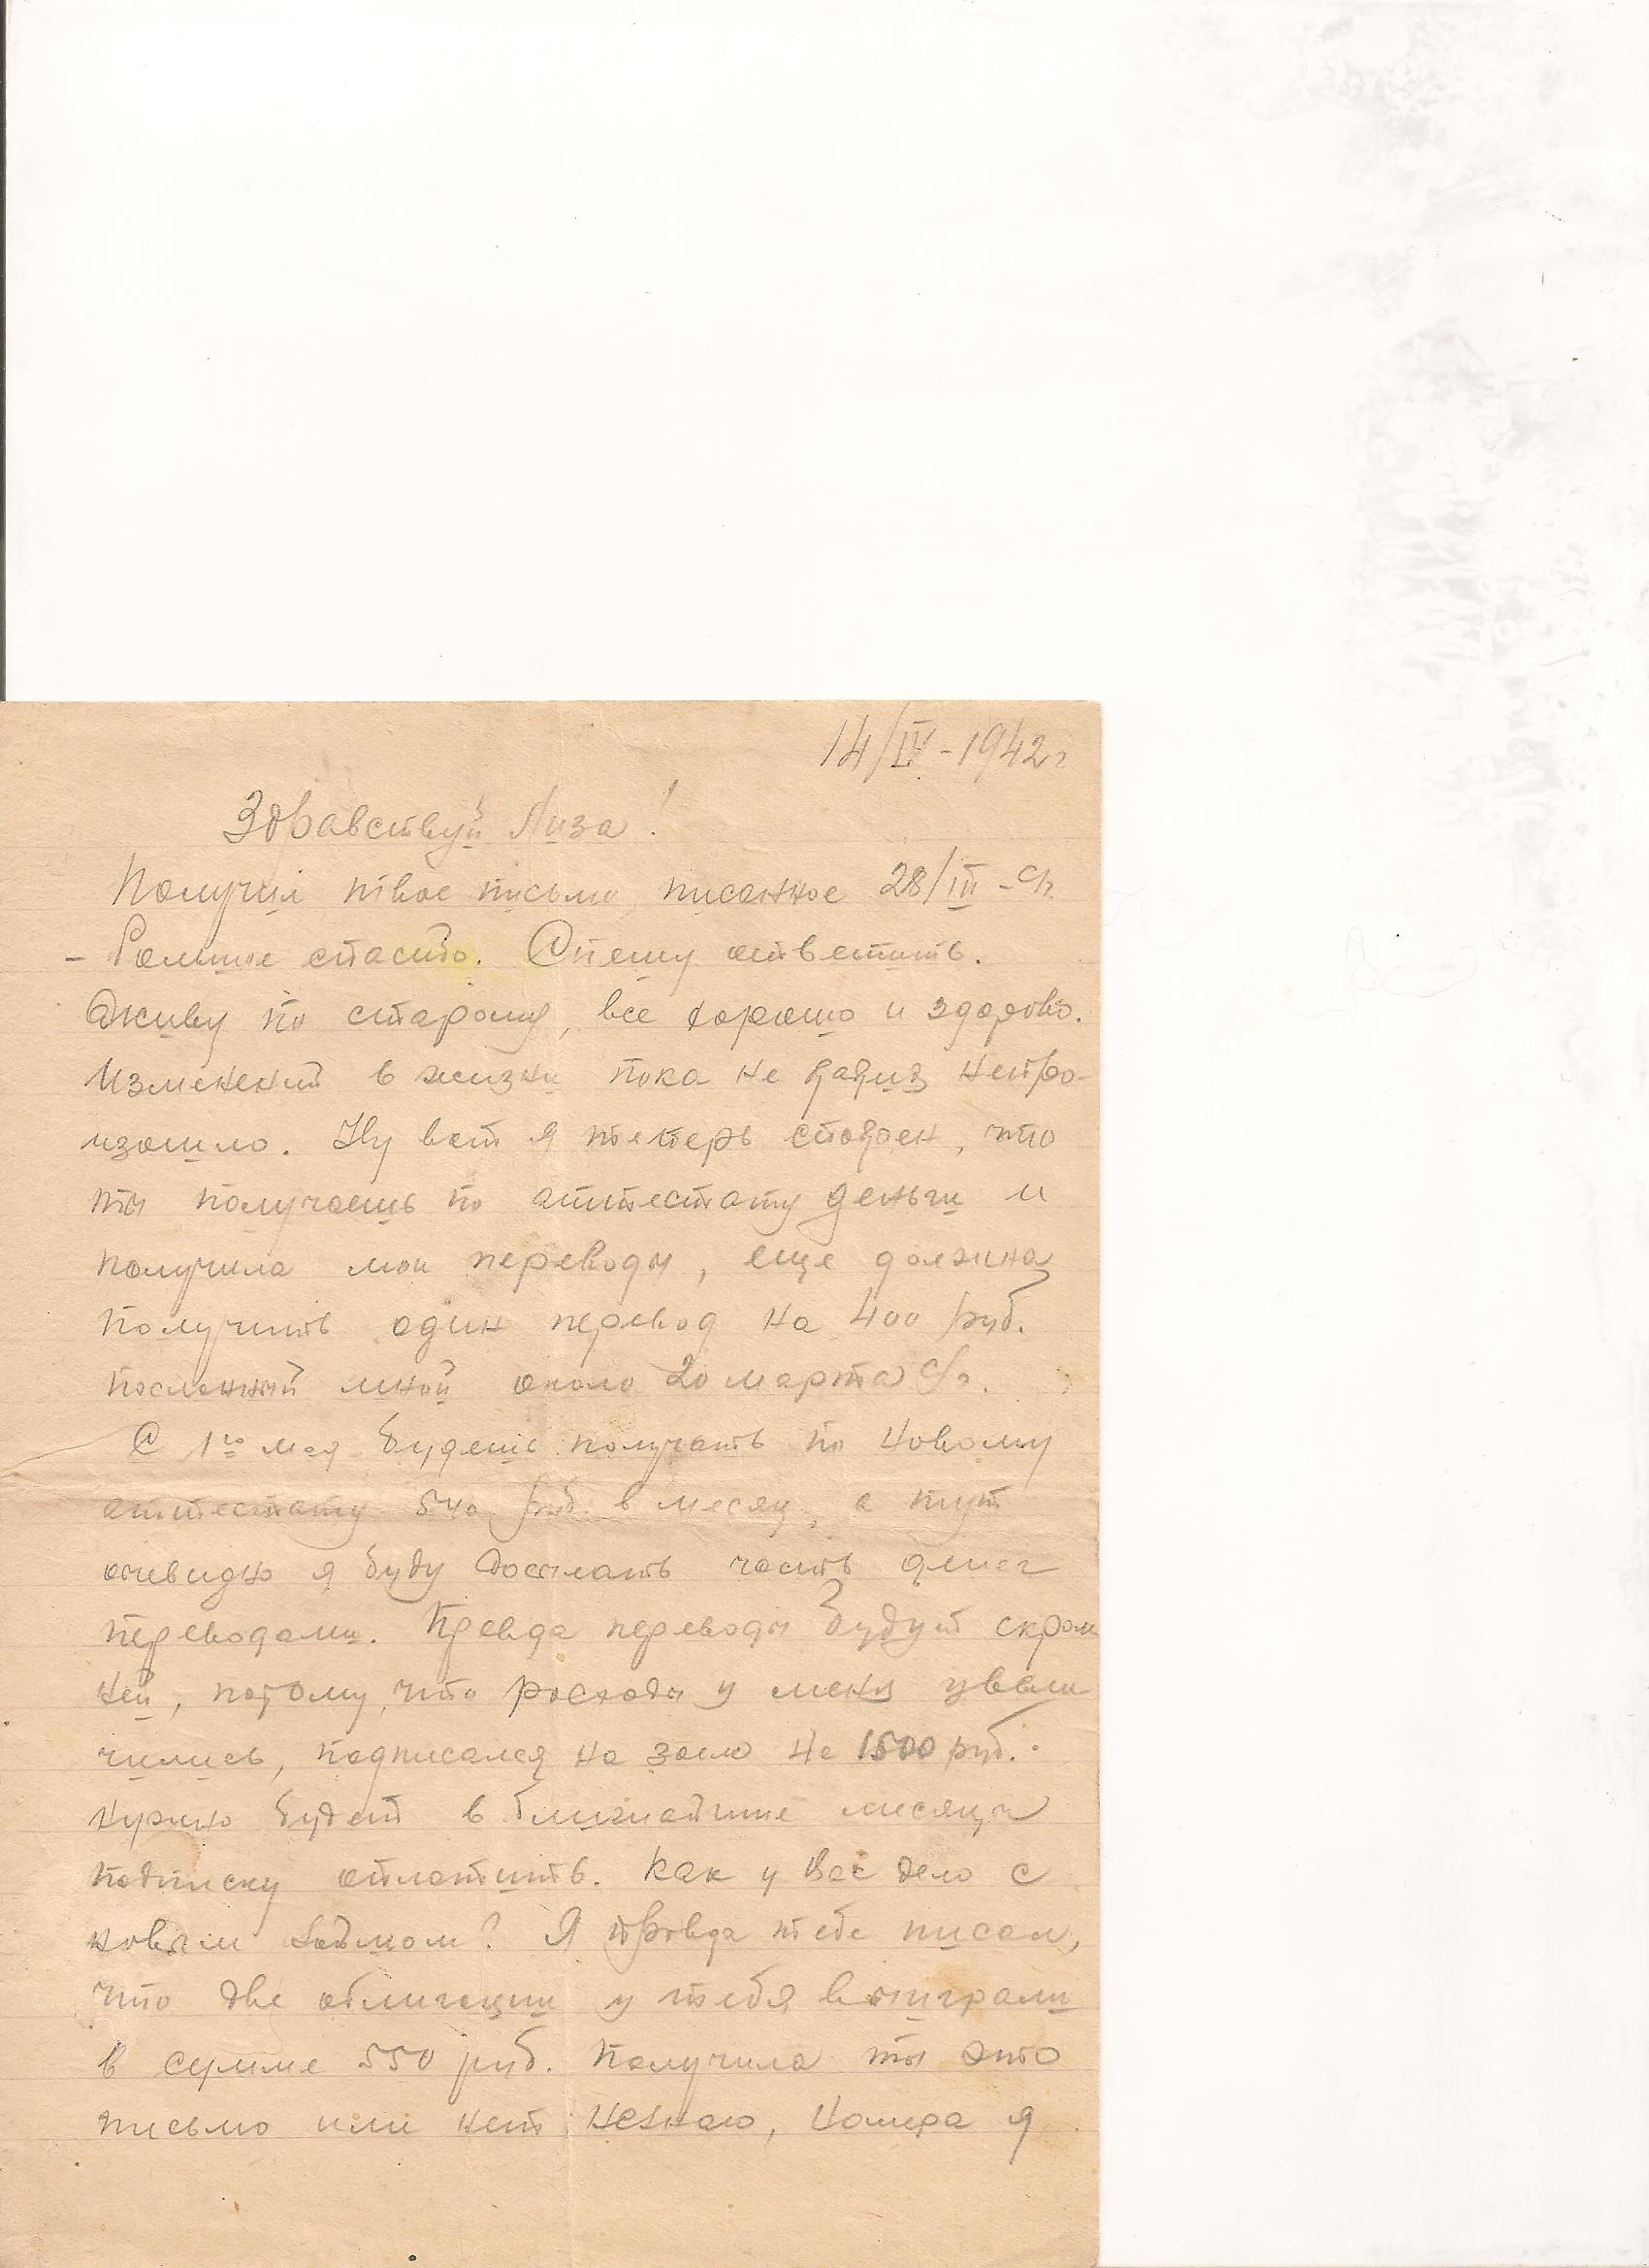 14/IV-1942г
Здравствуй Лиза!
Получил твое письмо писанное 28/III-с/г.
- Большое спасибо. Спешу ответить.
Живу по старому, все хорошо и здорово.
Изменений в жизни пока не непро-
изошло. Ну вот я теперь спокоен, что
ты получаешь по аттестату деньги и
получила мои переводы, еще должна
получить один перевод на 400 руб.
посланный мной около 20 марта с/г.
С 1го мая будешь получать по новому
аттестату 540 руб. в месяц, а тут
очевидно я буду досылать часть денег
переводами. Правда переводы будут скром
ней, потому, что расходы у меня увели
чились, подписался на заем на 1500 руб.
нужно будет в ближайшие месяцы
подписку оплатить. Как у Вас дело с
новым займом? Я правда тебе писал,
что две облигации у тебя выиграли
в сумме 550 руб. Получила ты это
письмо или нет незнаю, номера я